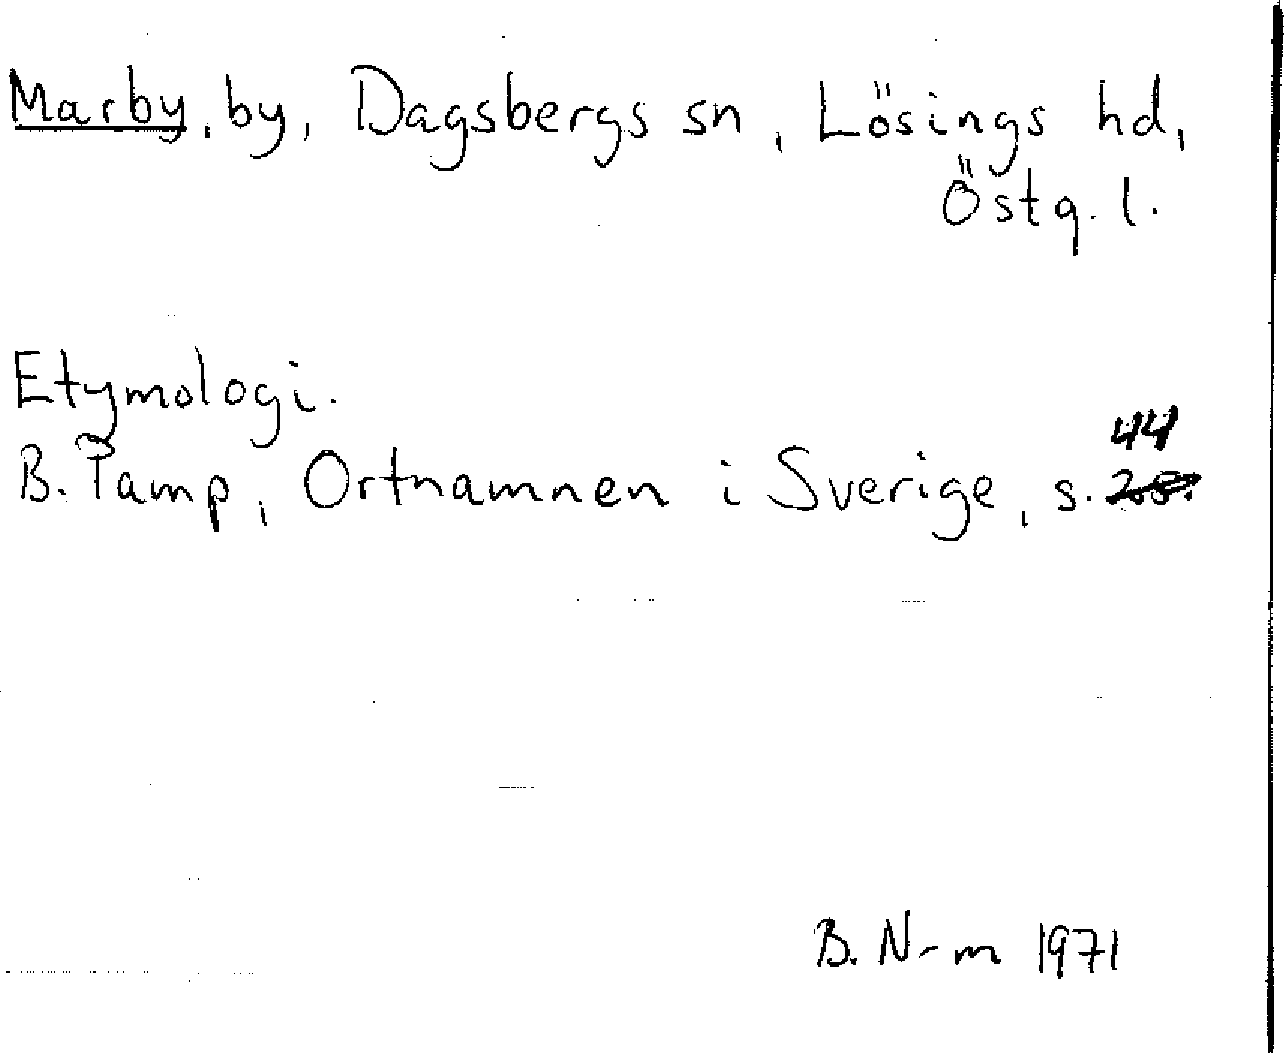 Marby, by, Dagsbergs sn, Lösings hd,
Östg. l.
Etymologi.
B. Pamp, Ortnamnen i Sverige, s. 44
B. N-m 1971